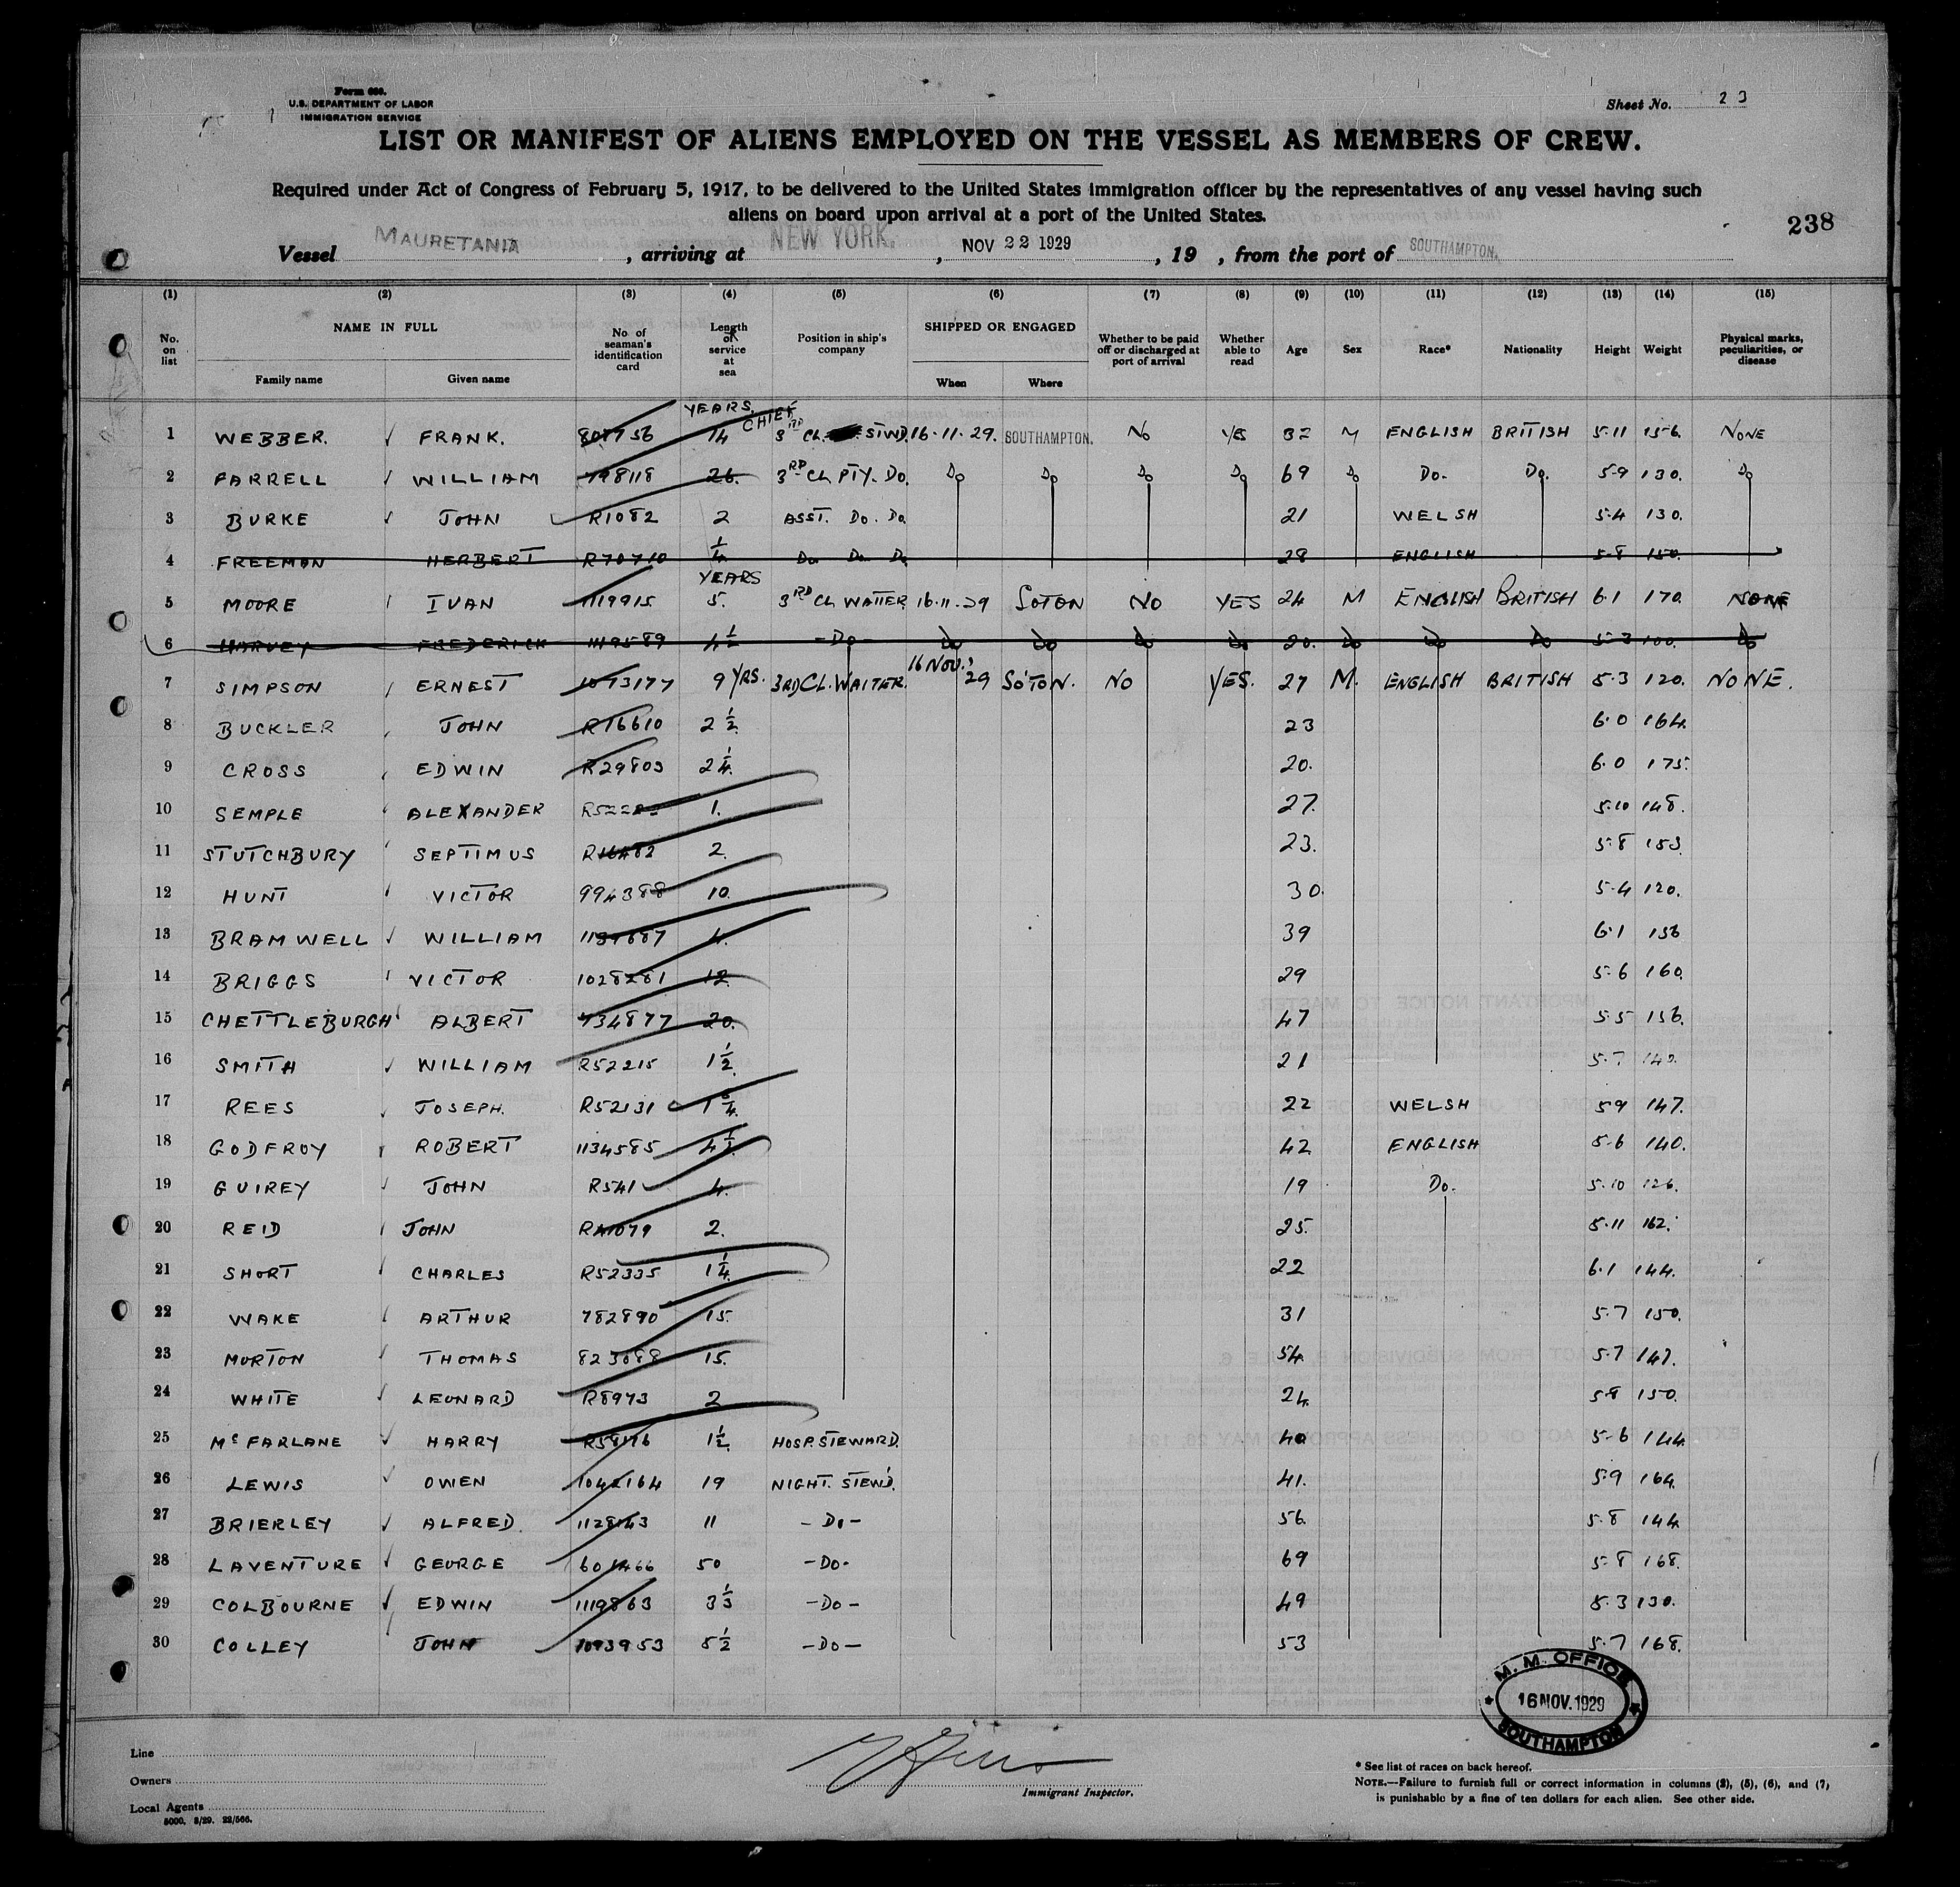 Form 680.
U.S. DEPARTMENT OF LABOR
IMMIGRATION SERVICE
Sheet No. 23
LIST OR MANIFEST OF ALIENS EMPLOYED ON THE VESSEL AS MEMBERS OF CREW.
Required under Act of Congress of February 5, 1917, to be delivered to the United States immigration officer by the representatives of any vessel having such
aliens on board upon arrival at a port of the United States.
238
Vessel MAURETANIA, arriving at NEW YORK, NOV 22 1929, 19 , from the port of SOUTHAMPTON.
(1) (2) (3) (4) (5) (6) (7) (8) (9) (10) (11) (12) (13) (14) (15)
No. on list NAME IN FULL Family name Given name No. of seaman's identification card Length of service at sea Position in ship's company SHIPPED OR ENGAGED When Where Whether to be paid off or discharged at port of arrival Whether able to read Age Sex Race* Nationality Height Weight Physical marks, peculiarities, or disease
YEARS. CHIEF
1 WEBBER. FRANK. 14 3RD CL. STWD. 16.11.29. SOUTHAMPTON. No YES 32 M ENGLISH BRITISH 5.11 156. NONE
2 FARRELL WILLIAM 798118 26. 3RD CL PTY. Do. Do Do Do Do 69 Do Do. Do. 5.9 130. Do
3 BURKE JOHN R1082 2 ASST. Do. Do. 21 WELSH 5.4 130.
4 FREEMAN HERBERT R70710 1/4 Do. Do. Do. 28 ENGLISH 5.8 150.
YEARS
5 MOORE IVAN 1119915 5. 3RD CL WAITER 16.11.29 SOTON NO YES 24 M ENGLISH BRITISH 6.1 170. NONE
6 HARVEY FREDERICK 1119589 4 1/2 -Do- Do Do Do Do 20. Do Do Do 5.3 100. Do
7 SIMPSON ERNEST 1073177 9 YRS. 3RD CL. WAITER. 16 NOV., 29 SO'TON. NO YES. 27 M. ENGLISH BRITISH 5.3 120. NONE.
8 BUCKLER JOHN R16610 2 1/2 23 6.0 164.
9 CROSS EDWIN R29803 2 1/4. 20. 6.0 175.
10 SEMPLE ALEXANDER 1. 27. 5.10 148.
11 STUTCHBURY SEPTIMUS R16482 2. 23. 5.8 153.
12 HUNT VICTOR 994388 10. 30. 5.4 120.
13 BRAMWELL WILLIAM 4. 39 6.1 156
14 BRIGGS VICTOR 1028281 12. 29 5.6 160.
15 CHETTLEBURGH ALBERT 734877 20. 47 5.5 156.
16 SMITH WILLIAM R52215 1 1/2. 21 5.7
17 REES JOSEPH. R52131 22 WELSH 5.9 147.
18 GODFROY ROBERT 1134585 4 1/2. 42 ENGLISH 5.6 140.
19 GUIREY JOHN R541 4. 19 Do. 5.10 126.
20 REID JOHN 2. 25. 5.11 162.
21 SHORT CHARLES R52335 1 1/4. 22 6.1 144.
22 WAKE ARTHUR 782890 15. 31 5.7 150.
23 MORTON THOMAS 823088 15. 54 5.7 147.
24 WHITE LEONARD R8973 2 24. 5.8 150.
25 McFARLANE HARRY 1 1/2. HOSP. STEWARD. 40 5.6 144.
26 LEWIS OWEN 1042164 19 NIGHT. STEWD. 41. 5.9 164.
27 BRIERLEY ALFRED. 1128143 11 -Do- 56. 5.8 144
28 LAVENTURE GEORGE 601466 50 -Do- 69 5.8 168.
29 COLBOURNE EDWIN 1119863 3 1/3 -Do- 49 5.3 130.
30 COLLEY JOHN 1093953 5 1/2 -Do- 53 5.7 168.
M. M. OFFICE
16 NOV. 1929
SOUTHAMPTON
Line
Owners
Local Agents
5000. 8/29. 22/566.
Immigrant Inspector.
* See list of races on back hereof.
NOTE.—Failure to furnish full or correct information in columns (2), (5), (6), and (7)
is punishable by a fine of ten dollars for each alien. See other side.